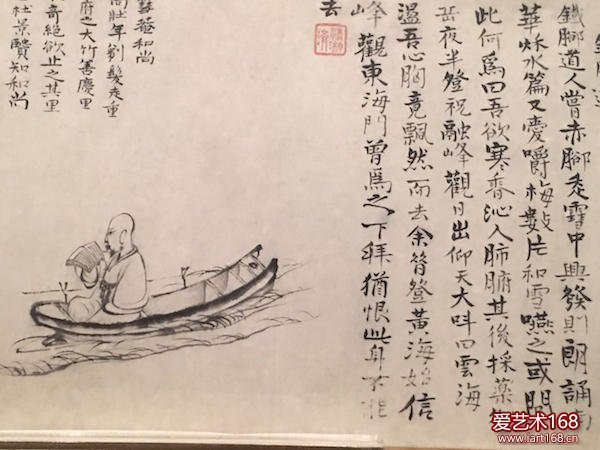 鐵腳道人嘗赤腳走雪中興發則朗誦南
華秌水篇又愛嚼梅數片和雪嚥之或問
此何爲曰吾欲寒香沁入肺腑其後採藥
岳夜半登祝融峰觀日出仰天大叫曰雲海
盪吾心胸竟飄然而去余昔登黃海始信
峰觀東海門曾爲之下拜猶恨此身不能
去
菴和尚
尚壯年剃髮走重
府之大竹善慶里
奇絕欲止之其里
杜景賢知和尚
爱艺术168
www.iart168.cn